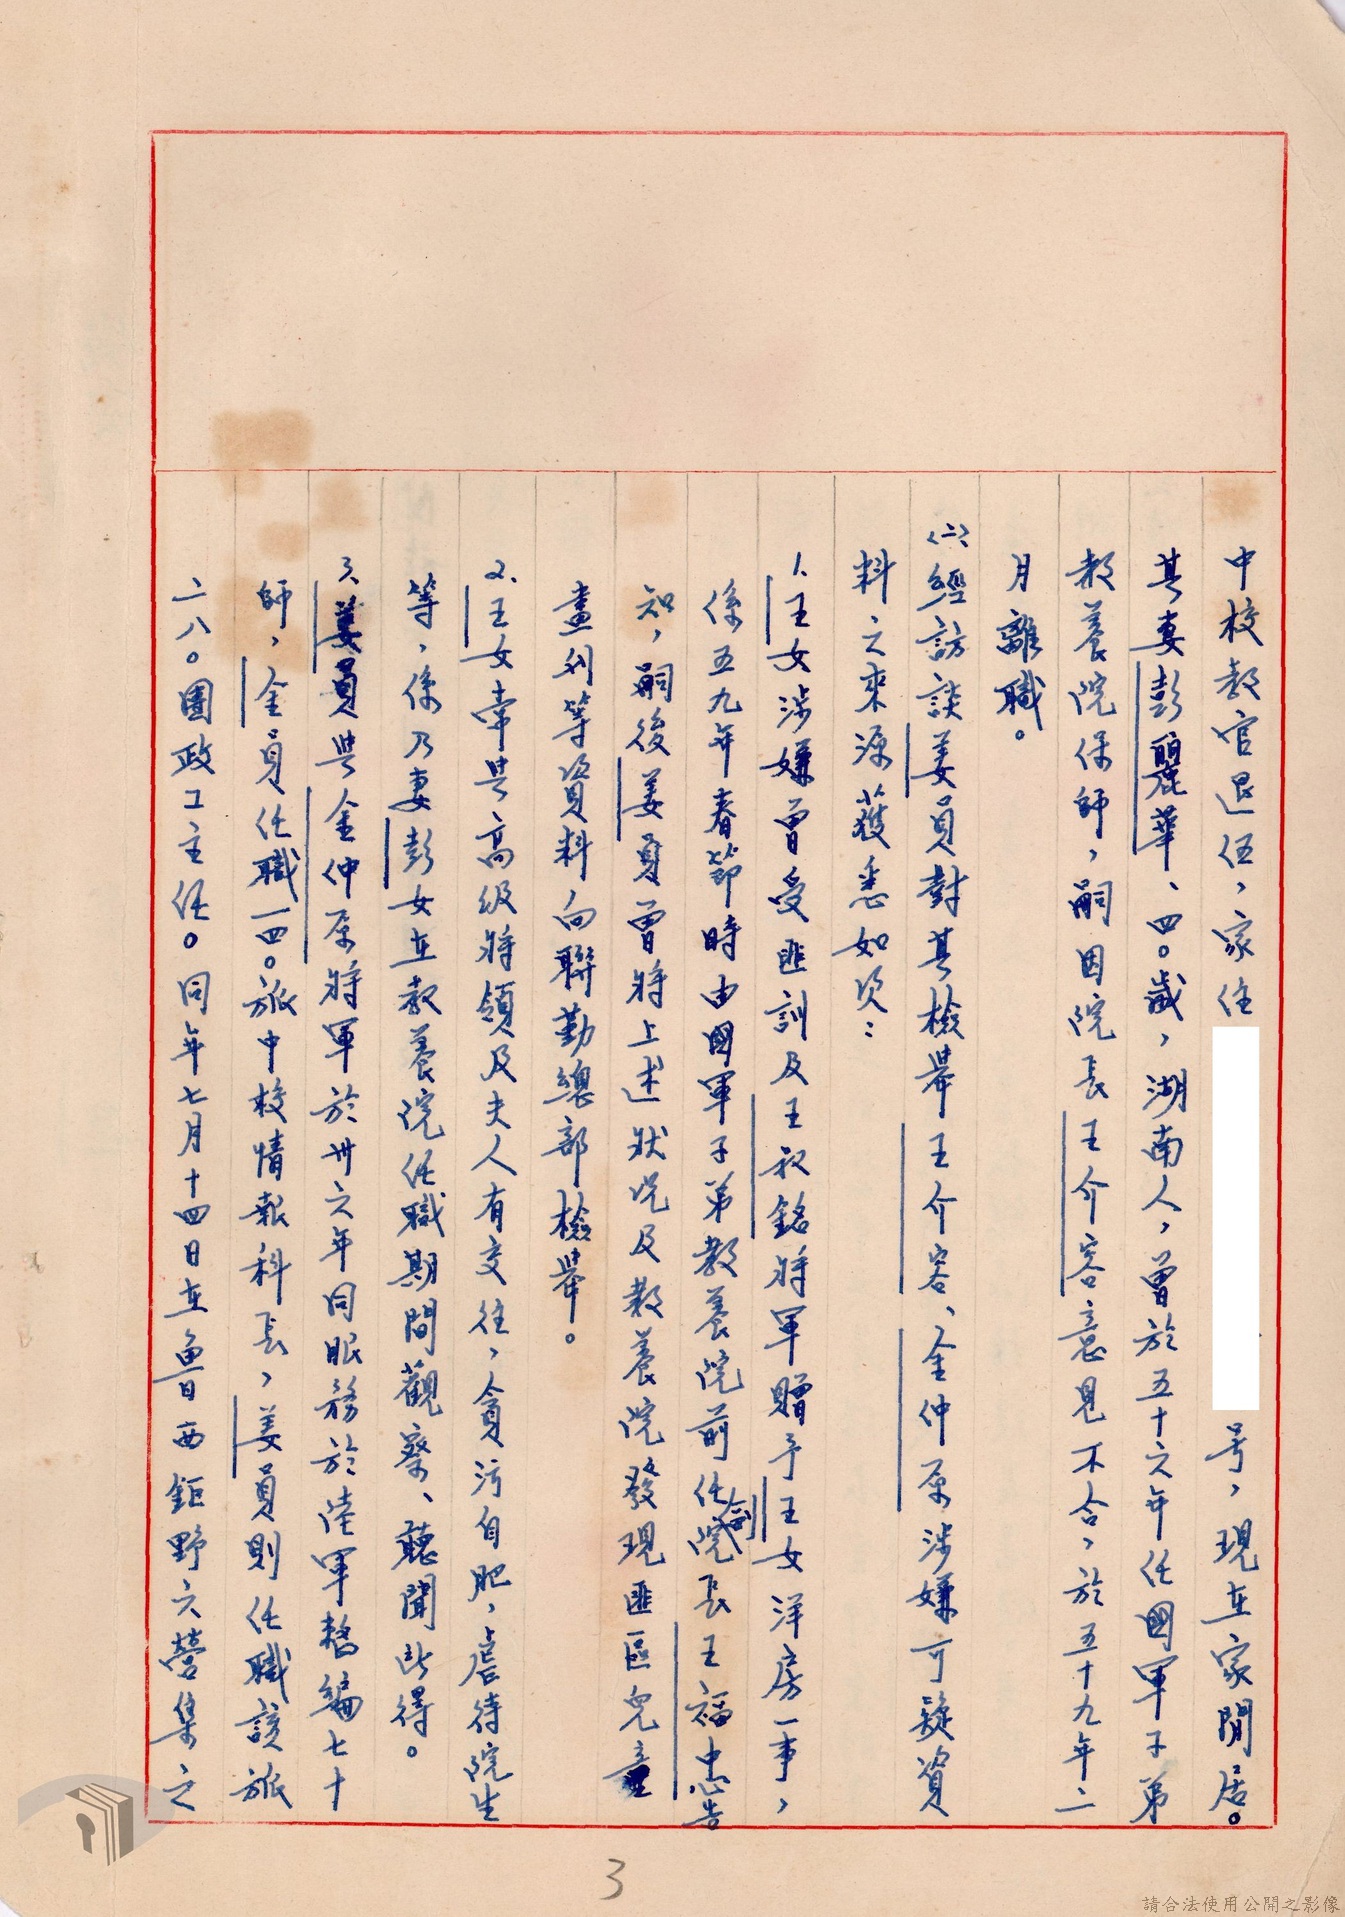 中校教官退伍，家住 号，現在家閒居。
其妻彭麗華、四〇歲，湖南人，曾於五十六年任國軍子弟
教養院保師，嗣因院長王介容意見不合，於五十九年二
月離職。
㈡經訪談姜員對其檢舉王介容、金仲原涉嫌可疑資
料之來源獲悉如次：
1.王女涉嫌曾受匪訓及王叔銘將軍贈予王女洋房一事，
係五九年春節時由國軍子弟教養院前任副院長王福忠告
知，嗣後姜員曾將上述狀況及教養院發現匪區兒童
畫刊等資料向聯勤總部檢舉。
2.王女牽與高級將領及夫人有交往，貪污自肥，虐待院生
等，係乃妻彭女在教養院任職期間觀察、聽聞所得。
3.姜員與金仲原將軍於卅六年同服務於陸軍整編七十
師，金員任職一四〇旅中校情報科長，姜員則任職該旅
二八〇團政工主任。同年七月十四日在魯西鉅野六營集之
3
請合法使用公開之影像